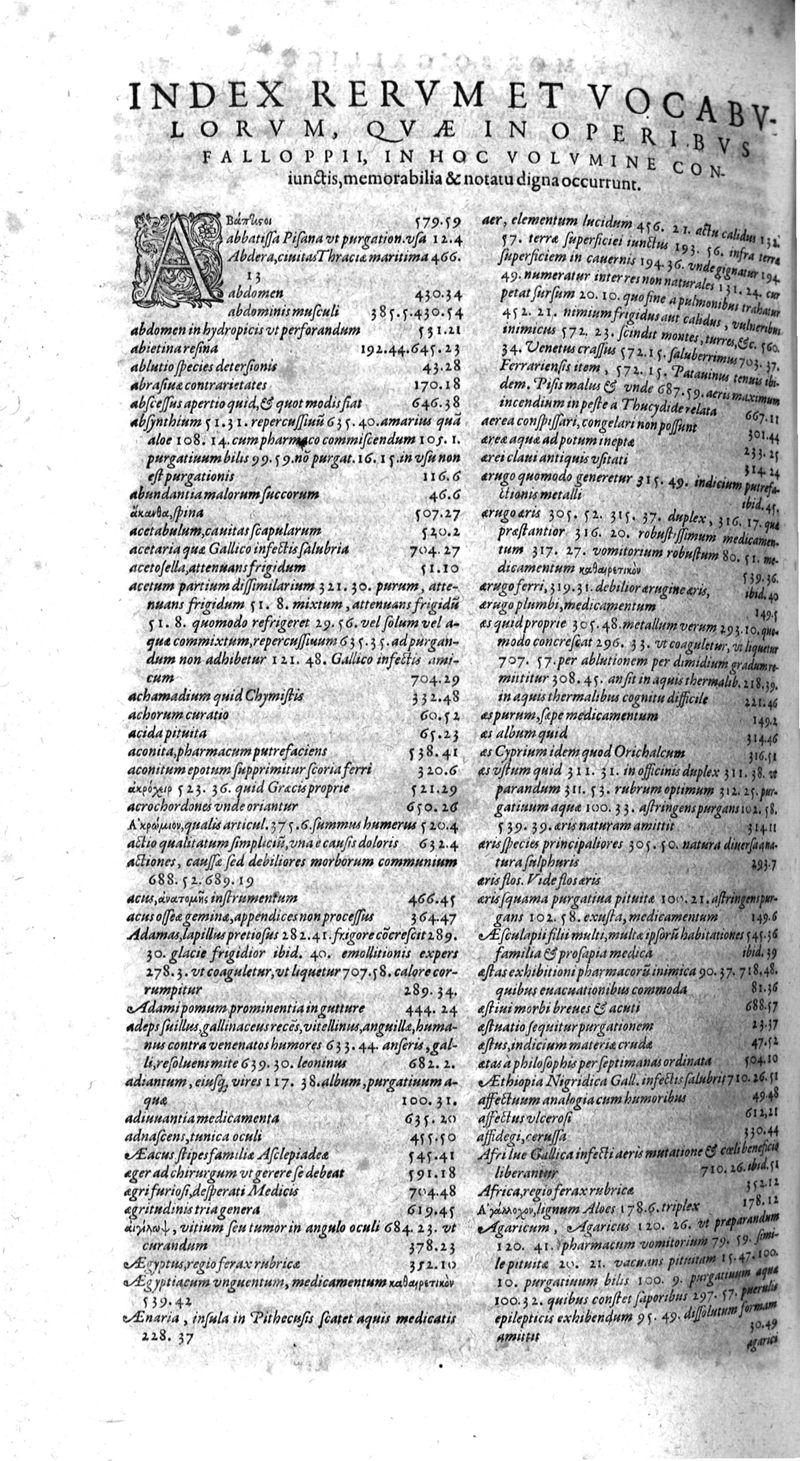 INDEX RERVM ET VOCABV-
LORVM, QVÆ IN OPERIBVS
FALLOPPII, IN HOC VOLVMINE CON-
iunctis, memorabilia & notatu digna occurrunt.
A
βάπτιςοι 579.59
abbatissa Pisana vt purgation. vsa 12.4
Abdera, ciuitas Thraciæ maritima 466.
13
abdomen 430.34
abdominis musculi 385.5.430.54
abdomen in hydropicis vt perforandum 531.21
abietina resina 192.44.645.23
ablutio species detersionis 43.28
abrasiuæ contrarietates 170.18
abscessus apertio quid, & quot modis fiat 646.38
absynthium 51.31. repercussiuũ 635.40. amarius quã
aloe 108.14. cum pharmaco commiscendum 105.1.
purgatiuum bilis 99.59. nõ purgat. 16.15. in vsu non
est purgationis 116.6
abundantia malorum succorum 46.6
ἄκανθα, spina 507.27
acetabulum, cauitas scapularum 520.2
acetaria quæ Gallico infectis salubria 704.27
acetosella, attenuans frigidum 51.10
acetum partium dissimilarium 321.30. purum, atte-
nuans frigidum 51.8. mixtum, attenuans frigidũ
51.8. quomodo refrigeret 29.56. vel solum vel a-
qua commixtum, repercussiuum 635.35. ad purgan-
dum non adhibetur 121.48. Gallico infectis ami-
cum 704.29
achamadium quid Chymistis 332.48
achorum curatio 60.52
acida pituita 65.23
aconita, pharmacum putrefaciens 538.41
aconitum epotum supprimitur scoria ferri 320.6
ἀκρόχειρ 523.36. quid Græcis proprie 521.29
acrochordones vnde oriantur 650.26
Ἀκρώμιον, qualis articul. 375.6. summus humerus 520.4
actio qualitatum simpliciũ, vna e causis doloris 632.4
actiones, caussæ sed debiliores morborum communium
688.52.689.19
acus, ἀνατομῆς instrumentum 466.45
acus ossea gemina, appendices non processus 364.47
Adamas, lapillus pretiosus 282.41. frigore cõcrescit 289.
30. glacie frigidior ibid. 40. emollitionis expers
278.3. vt coaguletur, vt liquetur 707.58. calore cor-
rumpitur 289.34.
Adami pomum, prominentia in gutture 444.24
adeps suillus, gallinaceus recẽs, vitellinus, anguillæ, huma-
nus contra venenatos humores 633.44. anseris, gal-
li, resoluens mite 639.30. leoninus 682.2.
adiantum, eiusq; vires 117.38. album, purgatiuum a-
quæ 100.31.
adiuuantia medicamenta 635.20
adnascens, tunica oculi 455.50
Æacus stipes familiæ Asclepiadeæ 545.41
æger ad chirurgum vt gerere se debeat 591.18
ægri furiosi, desperati Medicis 704.48
ægritudinis tria genera 619.45
αἰγίλωψ, vitium seu tumor in angulo oculi 684.23. vt
curandum 378.23
Ægyptus, regio ferax rubricæ 352.10
Ægyptiacum vnguentum, medicamentum καθαιρετικὸν
539.42
Ænaria, insula in Pithecusis scatet aquis medicatis
228.37
aer, elementum lucidum 456.21. actu calidus 132.
57. terræ superficiei iunctus 193.56. infra terræ
superficiem in cauernis 194.36. vnde gignatur 194
49. numeratur inter res non naturales 131.24. cur
petat sursum 20.10. quo fine a pulmonibus trahatur
452.21. nimium frigidus aut calidus, vulneribus
inimicus 572.23. scindit montes, turres, &c. 560.
34. Venetus crassus 572.15. saluberrimus 703.37.
Ferrariensis item, 572.15. Patauinus tenuis ibi-
dem. Pisis malus & vnde 687.59. aeris maximum
incendium in peste a Thucydide relata 667.11
aerea conspissari, congelari non possunt 301.44
ærea aqua ad potum inepta 233.25
ærei claui antiquis vsitati 314.24
ærugo quomodo generetur 315.49. indicium putrefa-
ctionis metalli ibid. 45.
ærugo æris 305.52. 315.37. duplex, 316.17. quæ
præstantior 316.20. robustissimum medicamen-
tum 317.27. vomitorium robustum 80.51. me-
dicamentum καθαιρετικὸν 539.36.
ærugo ferri, 319.31. debilior ærugine æris, ibid. 40
ærugo plumbi, medicamentum 149.5
æs quid proprie 305.48. metallum verum 293.10. quo-
modo concrescat 296.33. vt coaguletur, vt liquetur
707.57. per ablutionem per dimidium gradum re-
mittitur 308.45. an sit in aquis thermalib. 218.39.
in aquis thermalibus cognitu difficile 221.46
æs purum, sæpe medicamentum 149.2
æs album quid 314.46
æs Cyprium idem quod Orichalcum 316.51
æs vstum quid 311.31. in officinis duplex 311.38. vt
parandum 311.53. rubrum optimum 312.25. pur-
gatiuum aquæ 100.33. astringens purgans 102.58.
539.39. æris naturam amittit 314.11
æris species principaliores 305.50. natura diuersa a na-
tura sulphuris 293.7
æris flos. Vide flos æris
æris squama purgatiua pituitæ 100.21. astringens pur-
gans 102.58. exusta, medicamentum 149.6
Æsculapii filii multi, multæ ipsorũ habitationes 545.36
familia & prosapia medica ibid. 39
æstas exhibitioni pharmacorũ inimica 90.37. 718.48.
quibus euacuationibus commoda 81.36
æstiui morbi breues & acuti 688.57
æstuatio sequitur purgationem 23.37
æstus, indicium materiæ crudæ 47.52
ætas a philosophis per septimanas ordinata 504.10
Æthiopia Nigridica Gall. infectis salubris 710.26.51
affectuum analogia cum humoribus 49.48
affectus vlcerosi 612.21
affidegi, cerussa 330.44
Afri lue Gallica infecti aeris mutatione & cœli beneficio
liberantur 710.26. ibid. 51
Africa, regio ferax rubricæ 352.12
Ἀγάλλοχον, lignum Aloes 178.6. triplex 178.12
Agaricum, Agaricus 120.26. vt præparandum
120.41. pharmacum vomitorium 79.59. simi-
le pituitæ 20.21. vacuans pituitam 15.47.100.
10. purgatiuum bilis 100.9. purgatiuum aquæ
100.32. quibus constet saporibus 297.57. puerulis
epilepticis exhibendum 95.49. dissolutum formam
amittit 30.49
agarici